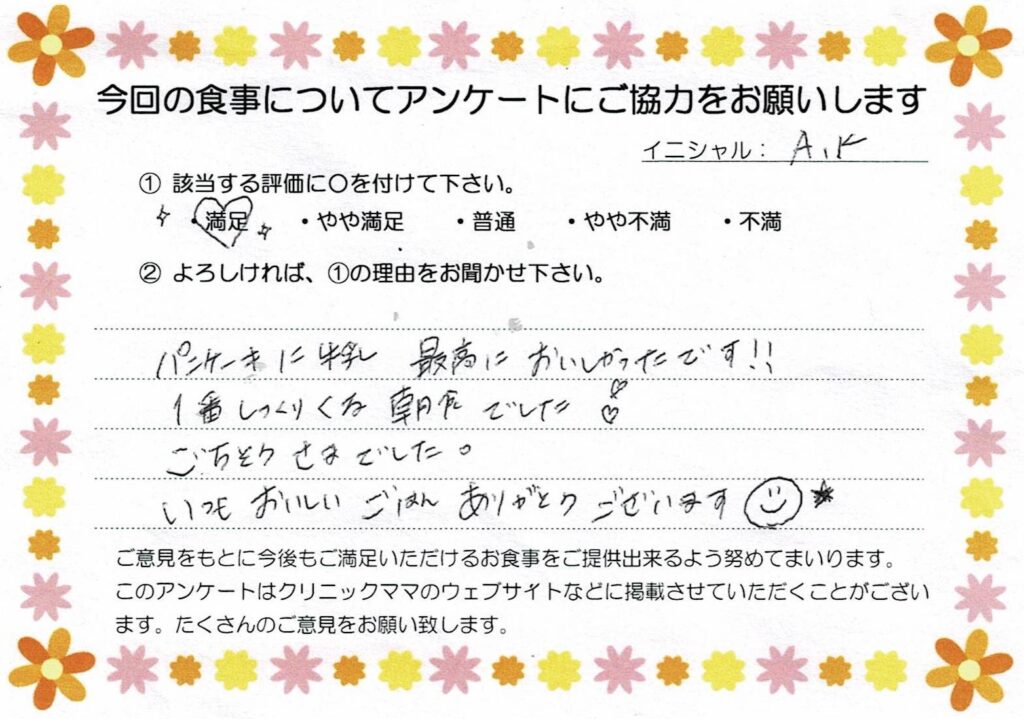 今回の食事についてアンケートにご協力をお願いします
イニシャル： A.K
① 該当する評価に〇を付けて下さい。
・満足 ・やや満足 ・普通 ・やや不満 ・不満
② よろしければ、①の理由をお聞かせ下さい。
パンケーキに牛乳 最高に おいしかったです!!
1番しっくりくる 朝食 でした
ごちそうさまでした。
いつも おいしい ごはん ありがとう ございます
ご意見をもとに今後もご満足いただけるお食事をご提供出来るよう努めてまいります。
このアンケートはクリニックママのウェブサイトなどに掲載させていただくことがござい
ます。たくさんのご意見をお願い致します。